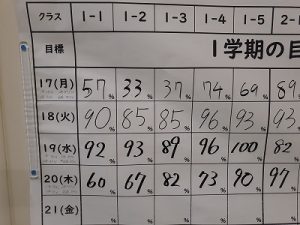 クラス 1-1 1-2 1-3 1-4 1-5
目標 1学期の
17(月) 57% 33% 37% 74% 69%
18(火) 90% 85% 85% 96% 93% 93
19(水) 92% 93% 89% 96% 100% 82
20(木) 60% 67% 82% 73% 90% 97
21(金) % % % % %